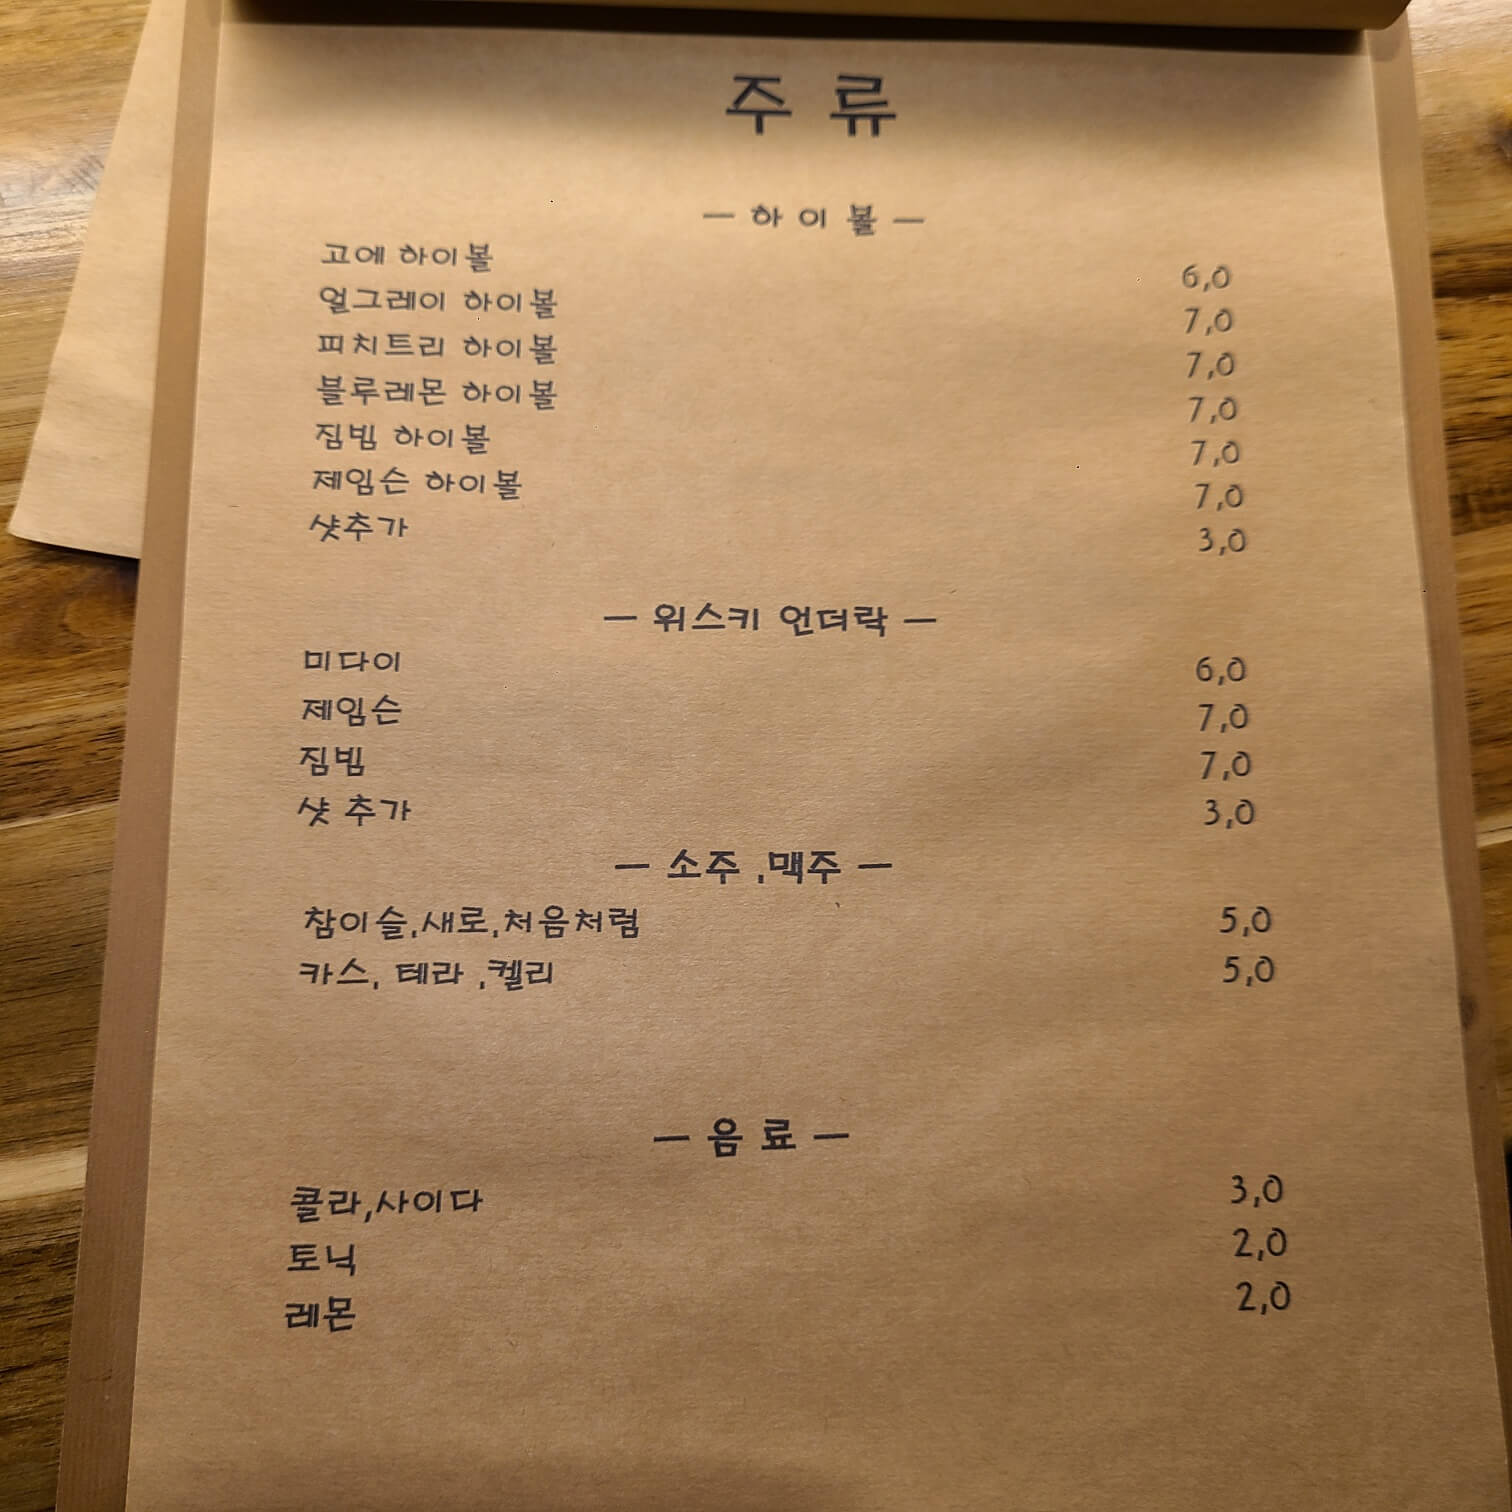 주류
— 하이볼 —
고에 하이볼 6,0
얼그레이 하이볼 7,0
피치트리 하이볼 7,0
블루레몬 하이볼 7,0
짐빔 하이볼 7,0
제임슨 하이볼 7,0
샷추가 3,0
— 위스키 언더락 —
미다이 6,0
제임슨 7,0
짐빔 7,0
샷 추가 3,0
— 소주 ,맥주 —
참이슬,새로,처음처럼 5,0
카스, 테라 ,켈리 5,0
— 음료 —
콜라,사이다 3,0
토닉 2,0
레몬 2,0